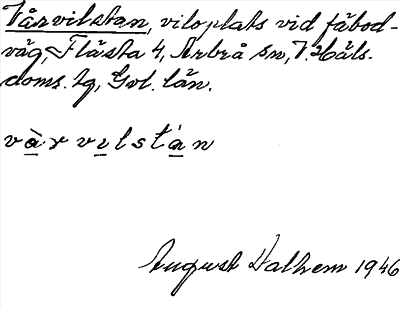 Vårvilstan, viloplats vid fäbod-
väg, Flästa 4, Arbrå sn, V. Häls-
doms. tg, Gvl. län.
vå̀rvilstán
August Dalhem 1946